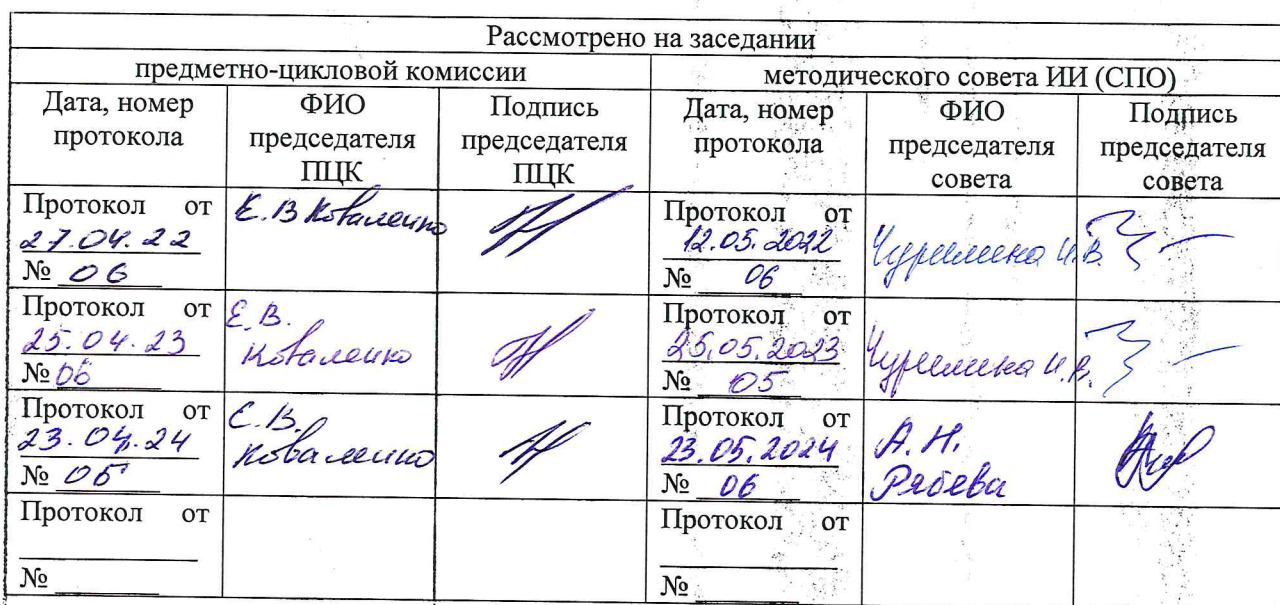 Рассмотрено на заседании
предметно-цикловой комиссии
методического совета ИИ (СПО)
Дата, номер
протокола
ФИО
председателя
ПЦК
Подпись
председателя
ПЦК
Дата, номер
протокола
ФИО
председателя
совета
Подпись
председателя
совета
Протокол от
27.04.22
№ 06
Е.В Коваленко
Протокол от
12.05.2022
№ 06
Чурилина И.В.
Протокол от
25.04.23
№ 06
Е.В.
Коваленко
Протокол от
25.05.2023
№ 05
Чурилина И.В.
Протокол от
23.04.24
№ 06
Е.В.
Коваленко
Протокол от
23.05.2024
№ 06
А.Н.
Рябева
Протокол от
№
Протокол от
№